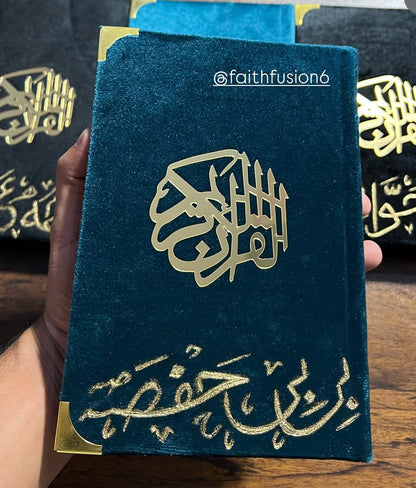 @faithfusion6
القرآن الكريم
بی بی حفصہ